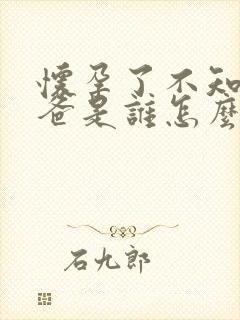 懷孕了不知
爸是誰怎麼
石九郎